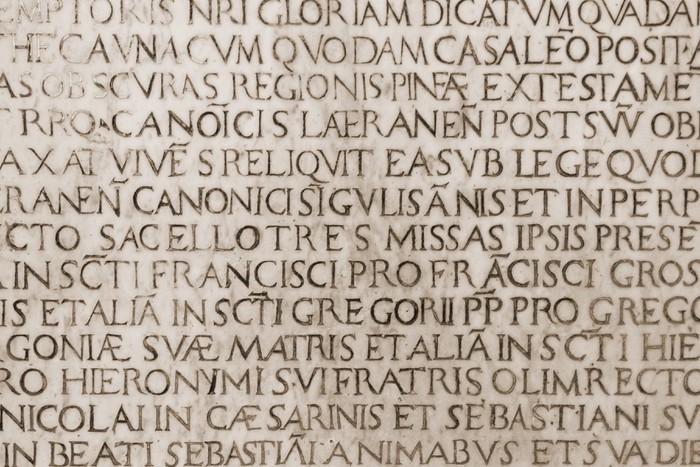 EMPTORIS NRI GLORIAM DICATVM QVADA
THECA VNA CVM QVODAM CASALE Õ POSIT
AS OBSCVRAS REGIONIS PINEÆ EX TESTAME
RRO CANOĨCIS LAERANEÑ POST SVṼ OB
AXAT VIVẼS RELIQVIT EA SVB LEGE QVOD
ERANEÑ CANONICI SĨGVLIS ÃNIS ET IN PERP
ECTO SACELLO TRES MISSAS IPSIS PRESẼ
IN SC̃TI FRANCISCI PRO FRÃCISCI GROS
IS ET ALIÃ IN SC̃TI GREGORII PP̃ PRO GREGO
GONIÆ SVÆ MATRIS ET ALIÃ IN SC̃TI HIE
RO HIERONYMI SVI FRATRIS OLIM RECTO
NICOLAI IN CÆSARINIS ET SEBASTIANI SV
IN BEATI SEBASTIÃI ANIMABVS ET SVADI